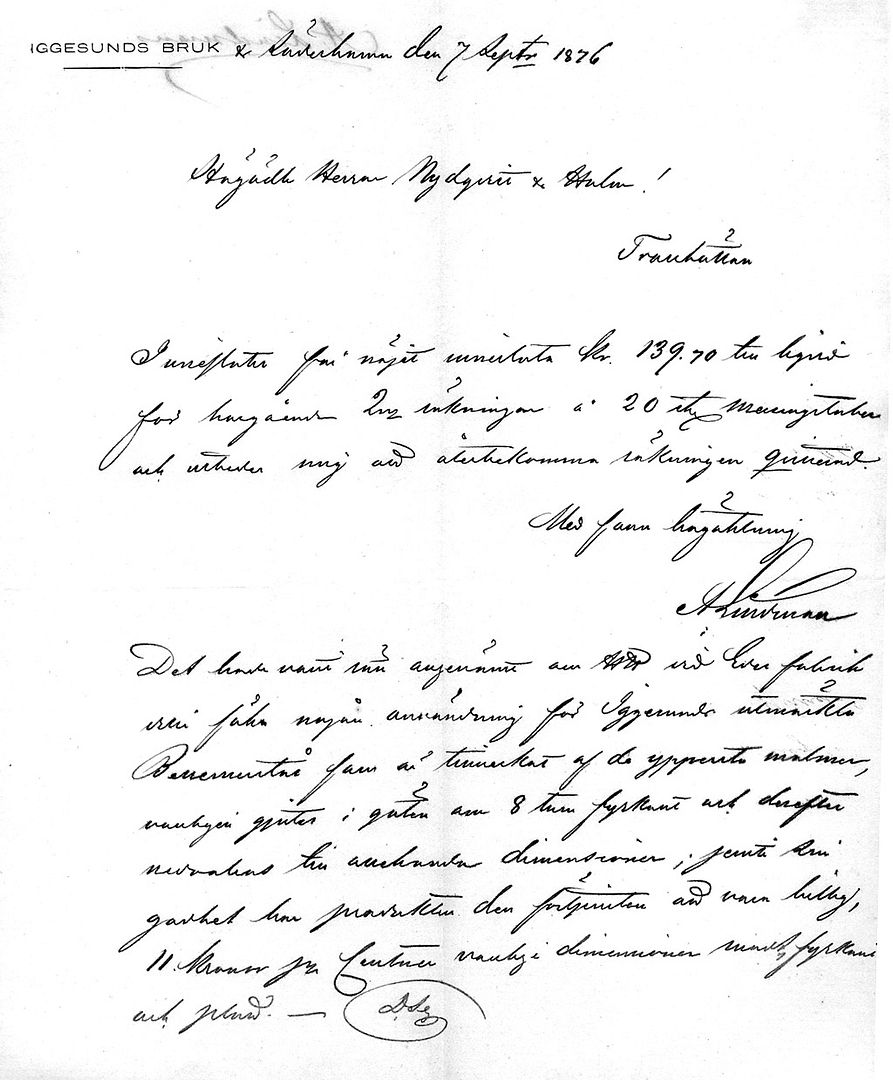 IGGESUNDS BRUK & Söderhamn den 7 Septr 1876
Högädle Herrar Nydqvist & Holm!
Trollhättan
Inneslutet får nöjet innesluta Kr. 139.70 till liqvid
för hosgående räkningar å 20 st Messingstuber
och utbeder mig att återbekomma räkningen qvitterad.
Med sann högaktning
A Lindman
Det hade varit mig angenämt om vid Eder fabrik
skulle försökas någon användning för Iggesunds utmärkta
Bessemerstål som är tillverkat af de ypperste malmer,
vanligen gjutes i göten om 8 tum fyrkant och derefter
nedvalsas till allehanda dimensioner; jemte sin
godhet har produkten den förtjensten att vara billig,
11 Kronor pr Centner vanliga dimensioner rundt, fyrkant
och platt. — D.S.